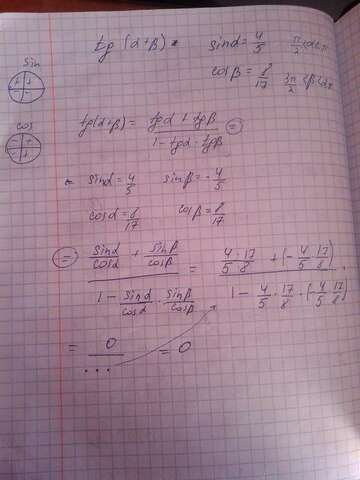 tg (α+β) • sinα = 4/5 π/2 < α < π
sin cosβ = 8/17 3π/2 < β < 2π
cos
tg(α+β) = (tgα + tgβ)/(1 - tgα · tgβ) =
sinα = 4/5 sinβ = -4/5
cosα = 8/17 cosβ = 8/17
= (sinα/cosα + sinβ/cosβ)/(1 - sinα/cosα · sinβ/cosβ) = (4/5 · 17/8 + (-4/5 · 17/8))/(1 - 4/5 · 17/8 · (-4/5 · 17/8))
= 0/... = 0